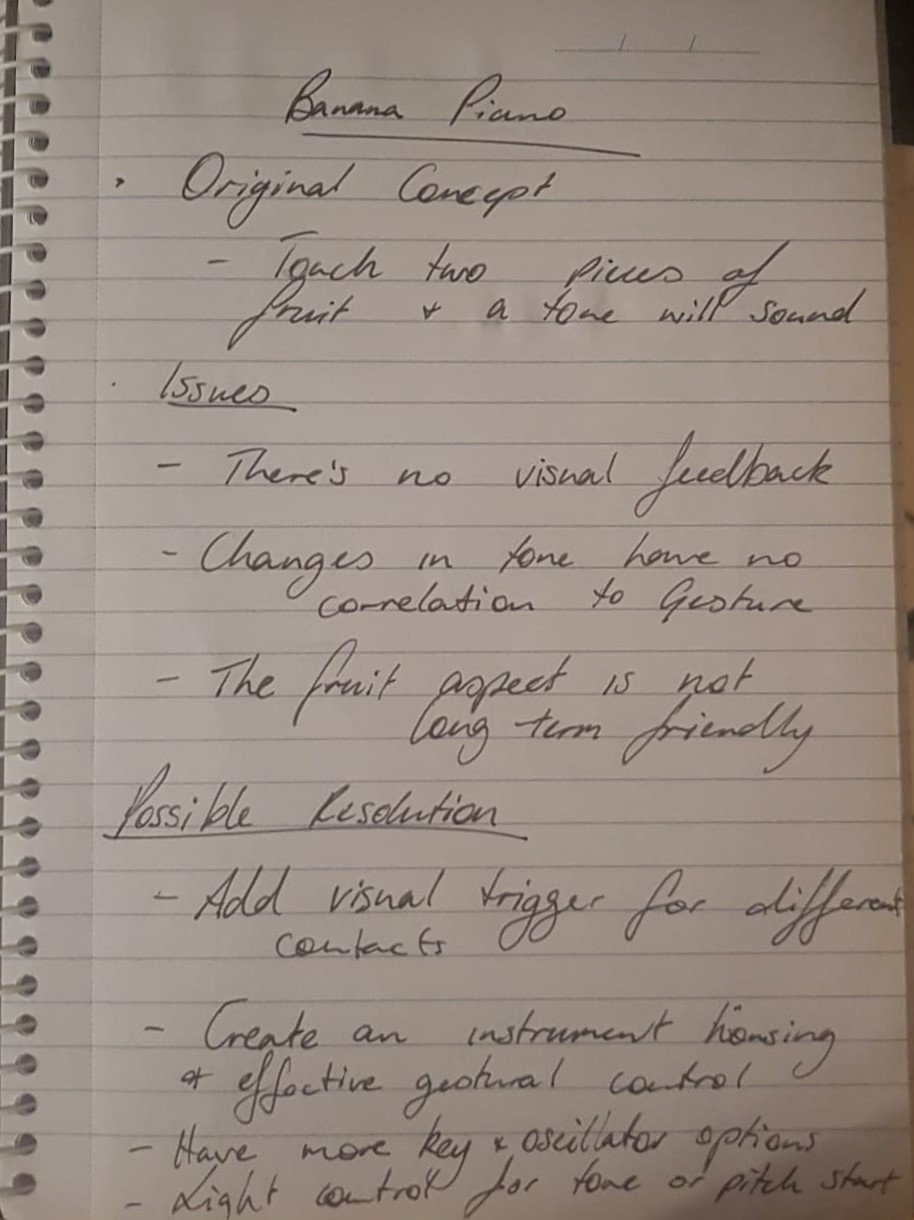 Banana Piano
Original Concept
- Touch two pieces of
fruit + a tone will sound
Issues
- There's no visual feedback
- Changes in tone have no
correlation to Gesture
- The fruit aspect is not
long term friendly
Possible Resolution
- Add visual trigger for different
contacts
- Create an instrument housing
+ effective gestural control
- Have more key + oscillator options
- Light control for tone or pitch start